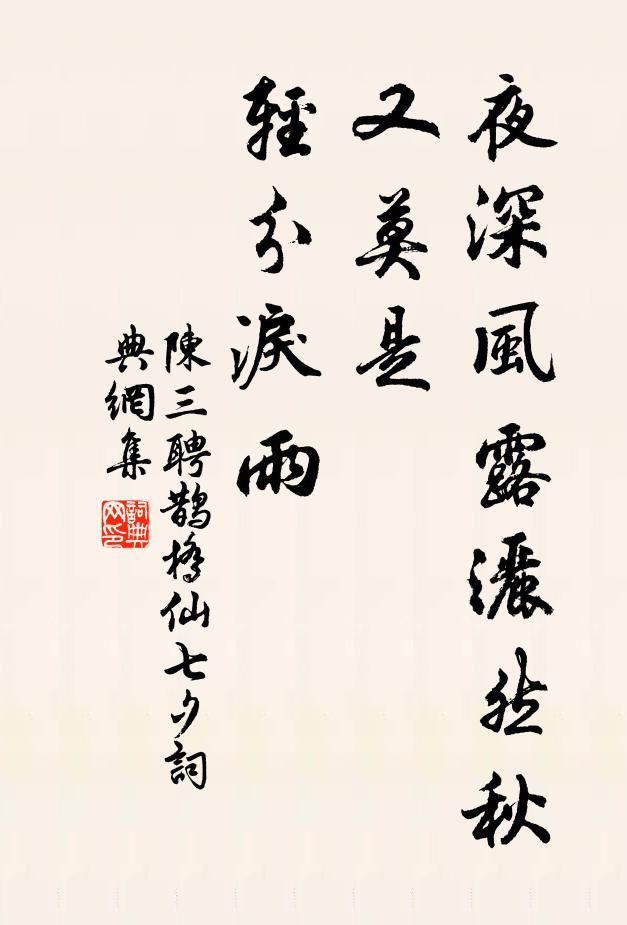 夜深風露灑然秋
又莫是
輕分淚雨
陳三聘鵲橋仙七夕詞
典網集
詞典
网印